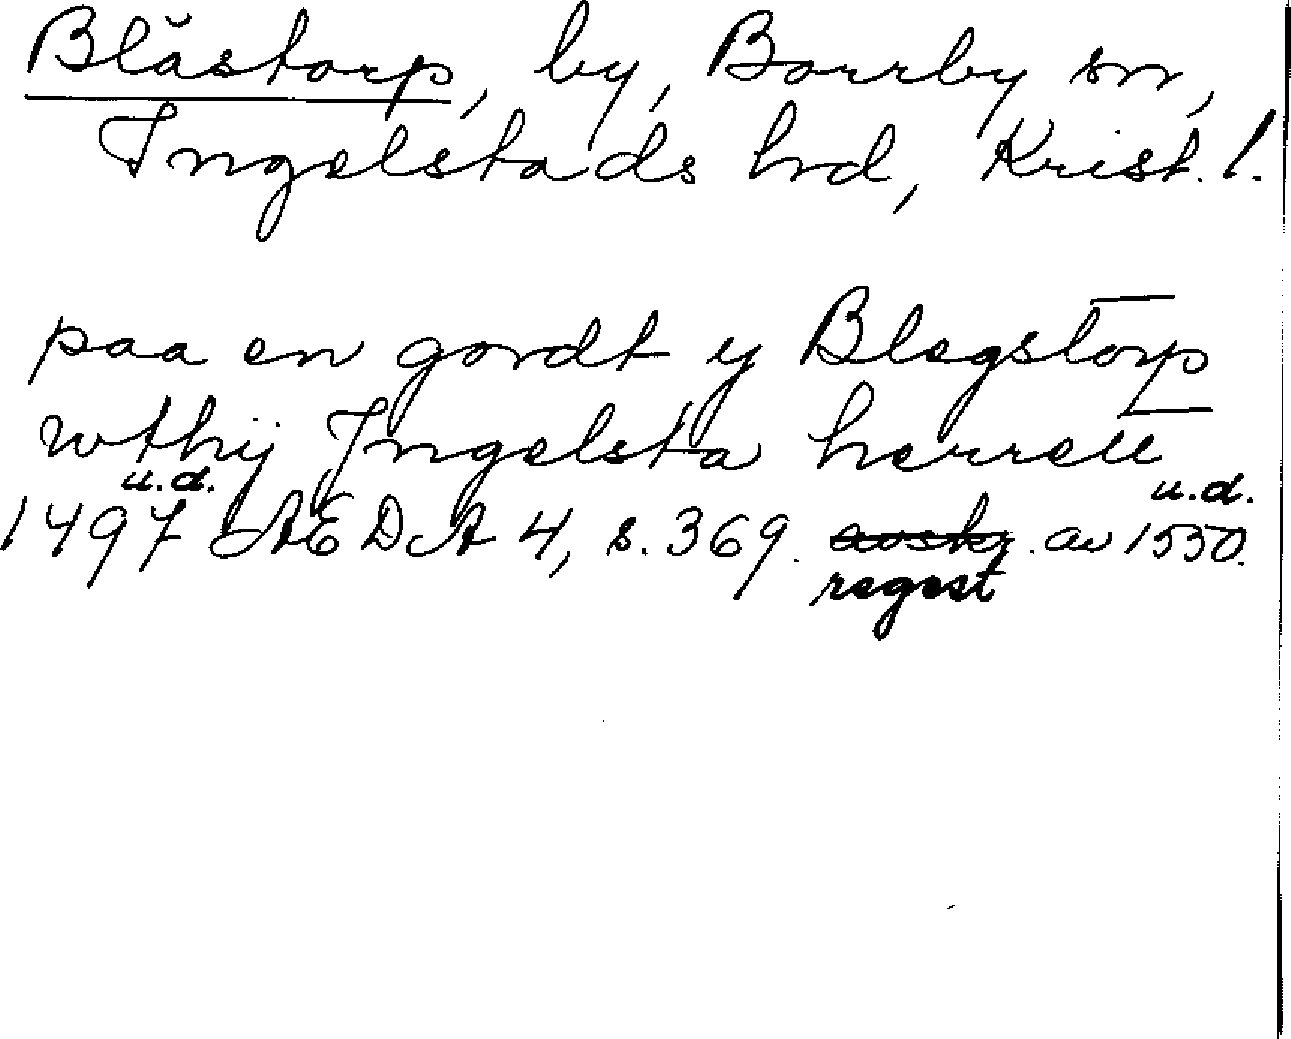 Blåstorp, by, Borrby sn,
Ingelstads hd, Krist. l.
paa en gordt y Blegstorp
wthij Ingelsta herrett
u.d. u.d.
1497 AEDA 4, s. 369. avskr. av 1550.
regest